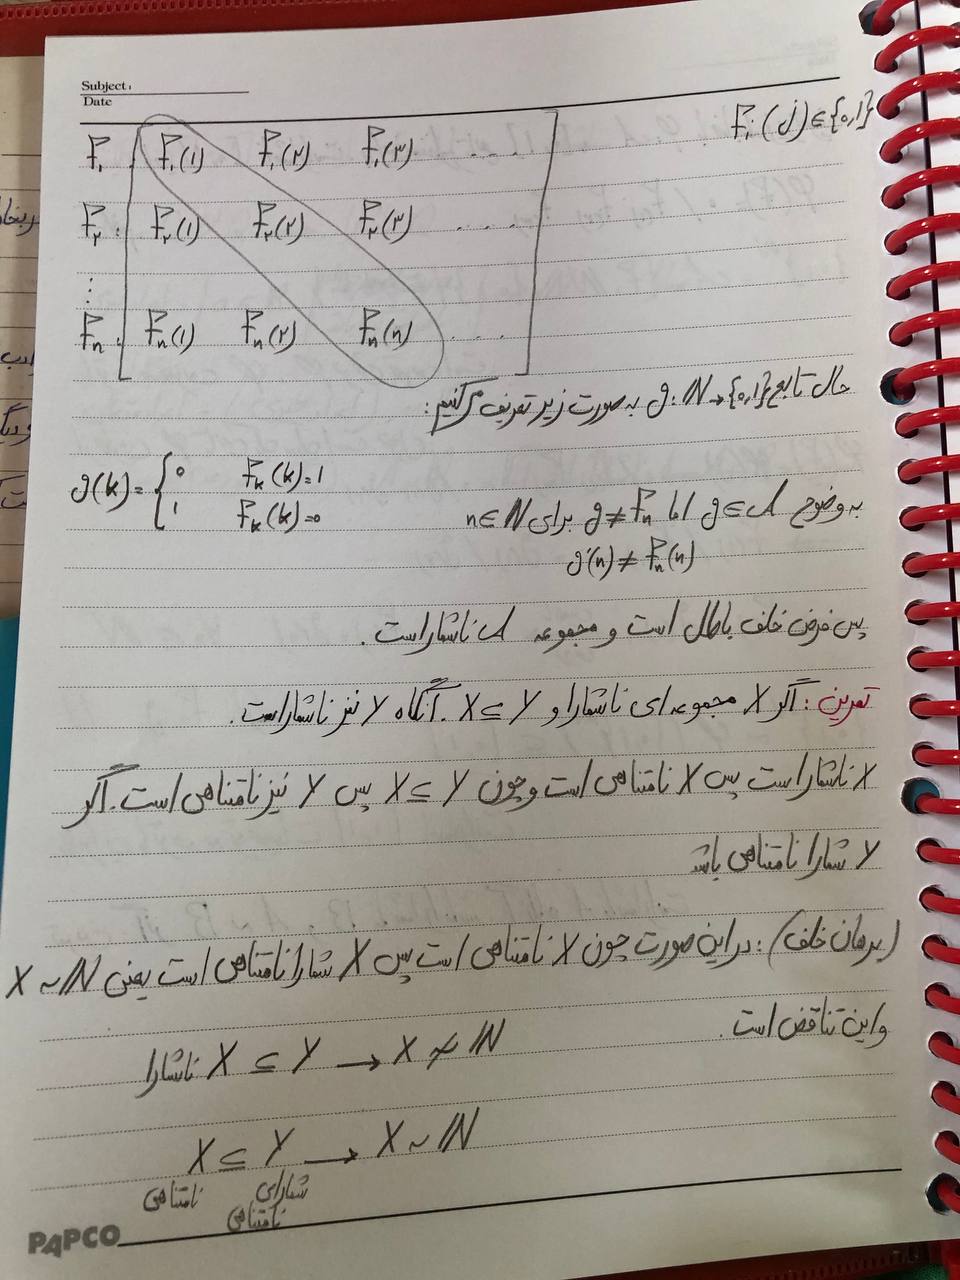 Subject:
Date
F_i(j) ∈ {0,1}
F_۱ : F_۱(۱) F_۱(۲) F_۱(۳) ....
F_۲ : F_۲(۱) F_۲(۲) F_۲(۳) ....
⋮
F_n : F_n(۱) F_n(۲) F_n(n) ....
حال تابع g: N → {۰,۱} به صورت زیر تعریف می‌کنیم:
g(k) = { ۰ F_k(k)=۱
۱ F_k(k)=۰
به وضوح g ∈ A اما g ≠ F_n برای n ∈ N
g(n) ≠ F_n(n)
پس فرض خلف باطل است و مجموعه A ناشمارا است.
تمرین: اگر X مجموعه‌ای ناشمارا و X ⊆ Y. آنگاه Y نیز ناشماراست.
X ناشماراست پس X نامتناهی است و چون X ⊆ Y پس Y نیز نامتناهی است. اگر
Y شمارا نامتناهی باشد
(برهان خلف): در این صورت چون X نامتناهی است پس X شمارا نامتناهی است یعنی X ~ N
و این تناقض است.
ناشمارا X ⊆ Y → X ≁ N
X ⊆ Y → X ~ N
نامتناهی شمارای
نامتناهی
PAPCO